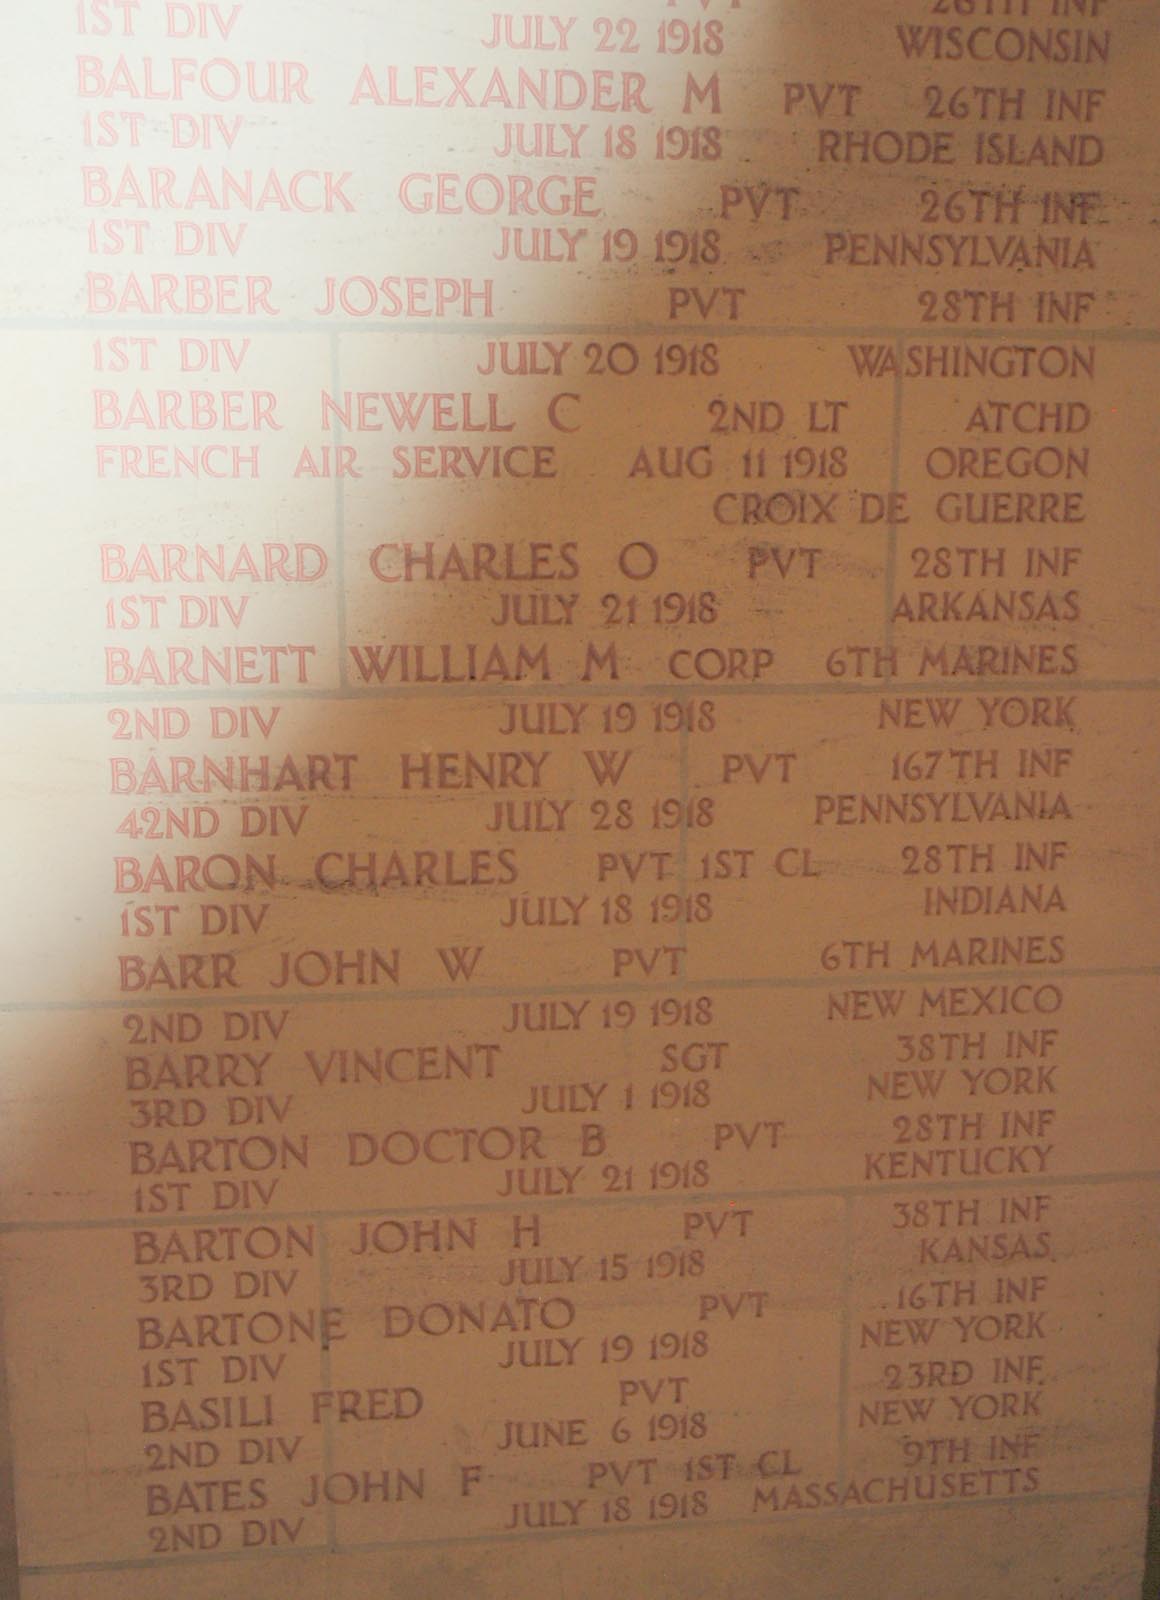 1ST DIV JULY 22 1918 WISCONSIN
BALFOUR ALEXANDER M PVT 26TH INF
1ST DIV JULY 18 1918 RHODE ISLAND
BARANACK GEORGE PVT 26TH INF
1ST DIV JULY 19 1918 PENNSYLVANIA
BARBER JOSEPH PVT 28TH INF
1ST DIV JULY 20 1918 WASHINGTON
BARBER NEWELL C 2ND LT ATCHD
FRENCH AIR SERVICE AUG 11 1918 OREGON
CROIX DE GUERRE
BARNARD CHARLES O PVT 28TH INF
1ST DIV JULY 21 1918 ARKANSAS
BARNETT WILLIAM M CORP 6TH MARINES
2ND DIV JULY 19 1918 NEW YORK
BARNHART HENRY W PVT 167TH INF
42ND DIV JULY 28 1918 PENNSYLVANIA
BARON CHARLES PVT 1ST CL 28TH INF
1ST DIV JULY 18 1918 INDIANA
BARR JOHN W PVT 6TH MARINES
2ND DIV JULY 19 1918 NEW MEXICO
BARRY VINCENT SGT 38TH INF
3RD DIV JULY 1 1918 NEW YORK
BARTON DOCTOR B PVT 28TH INF
1ST DIV JULY 21 1918 KENTUCKY
BARTON JOHN H PVT 38TH INF
3RD DIV JULY 15 1918 KANSAS
BARTONE DONATO PVT 16TH INF
1ST DIV JULY 19 1918 NEW YORK
BASILI FRED PVT 23RD INF
2ND DIV JUNE 6 1918 NEW YORK
BATES JOHN F PVT 1ST CL 9TH INF
2ND DIV JULY 18 1918 MASSACHUSETTS